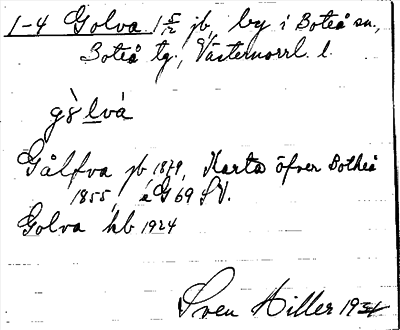 1-4 Golva 1 5/12 jb, by i Boteå sn.,
Boteå tg., Västernorrl. l.
gò̀lvá
Gålfva jb 1879, Karta öfver Botheå
1855, äG 69 SV.
Golva kb 1924
Sven Hiller 1934